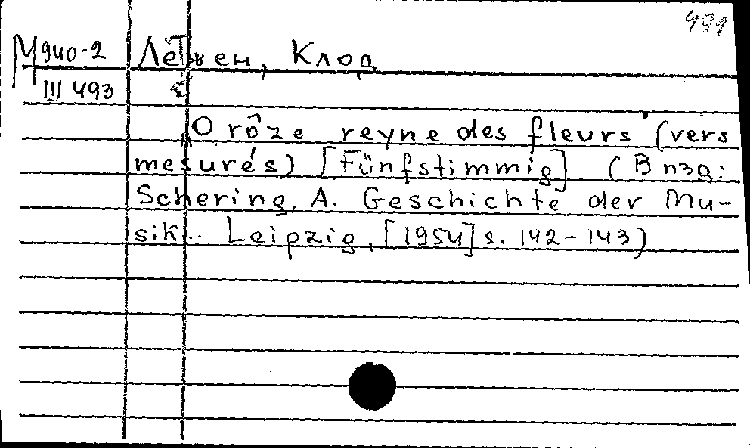 499
М940-2 Лёжен, Клод
III 493
O rôze reyne des fleurs (vers
mesurés) [Fünfstimmig] (В изд:
Schering, A. Geschichte der Mu-
sik.. Leipzig, [1954] s. 142-143)